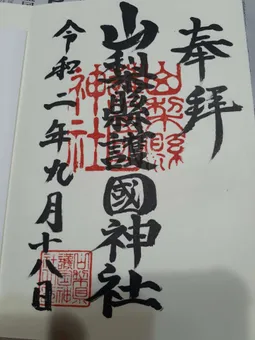 奉拝
山梨縣護國神社
令和二年九月十八日
山梨縣
神社